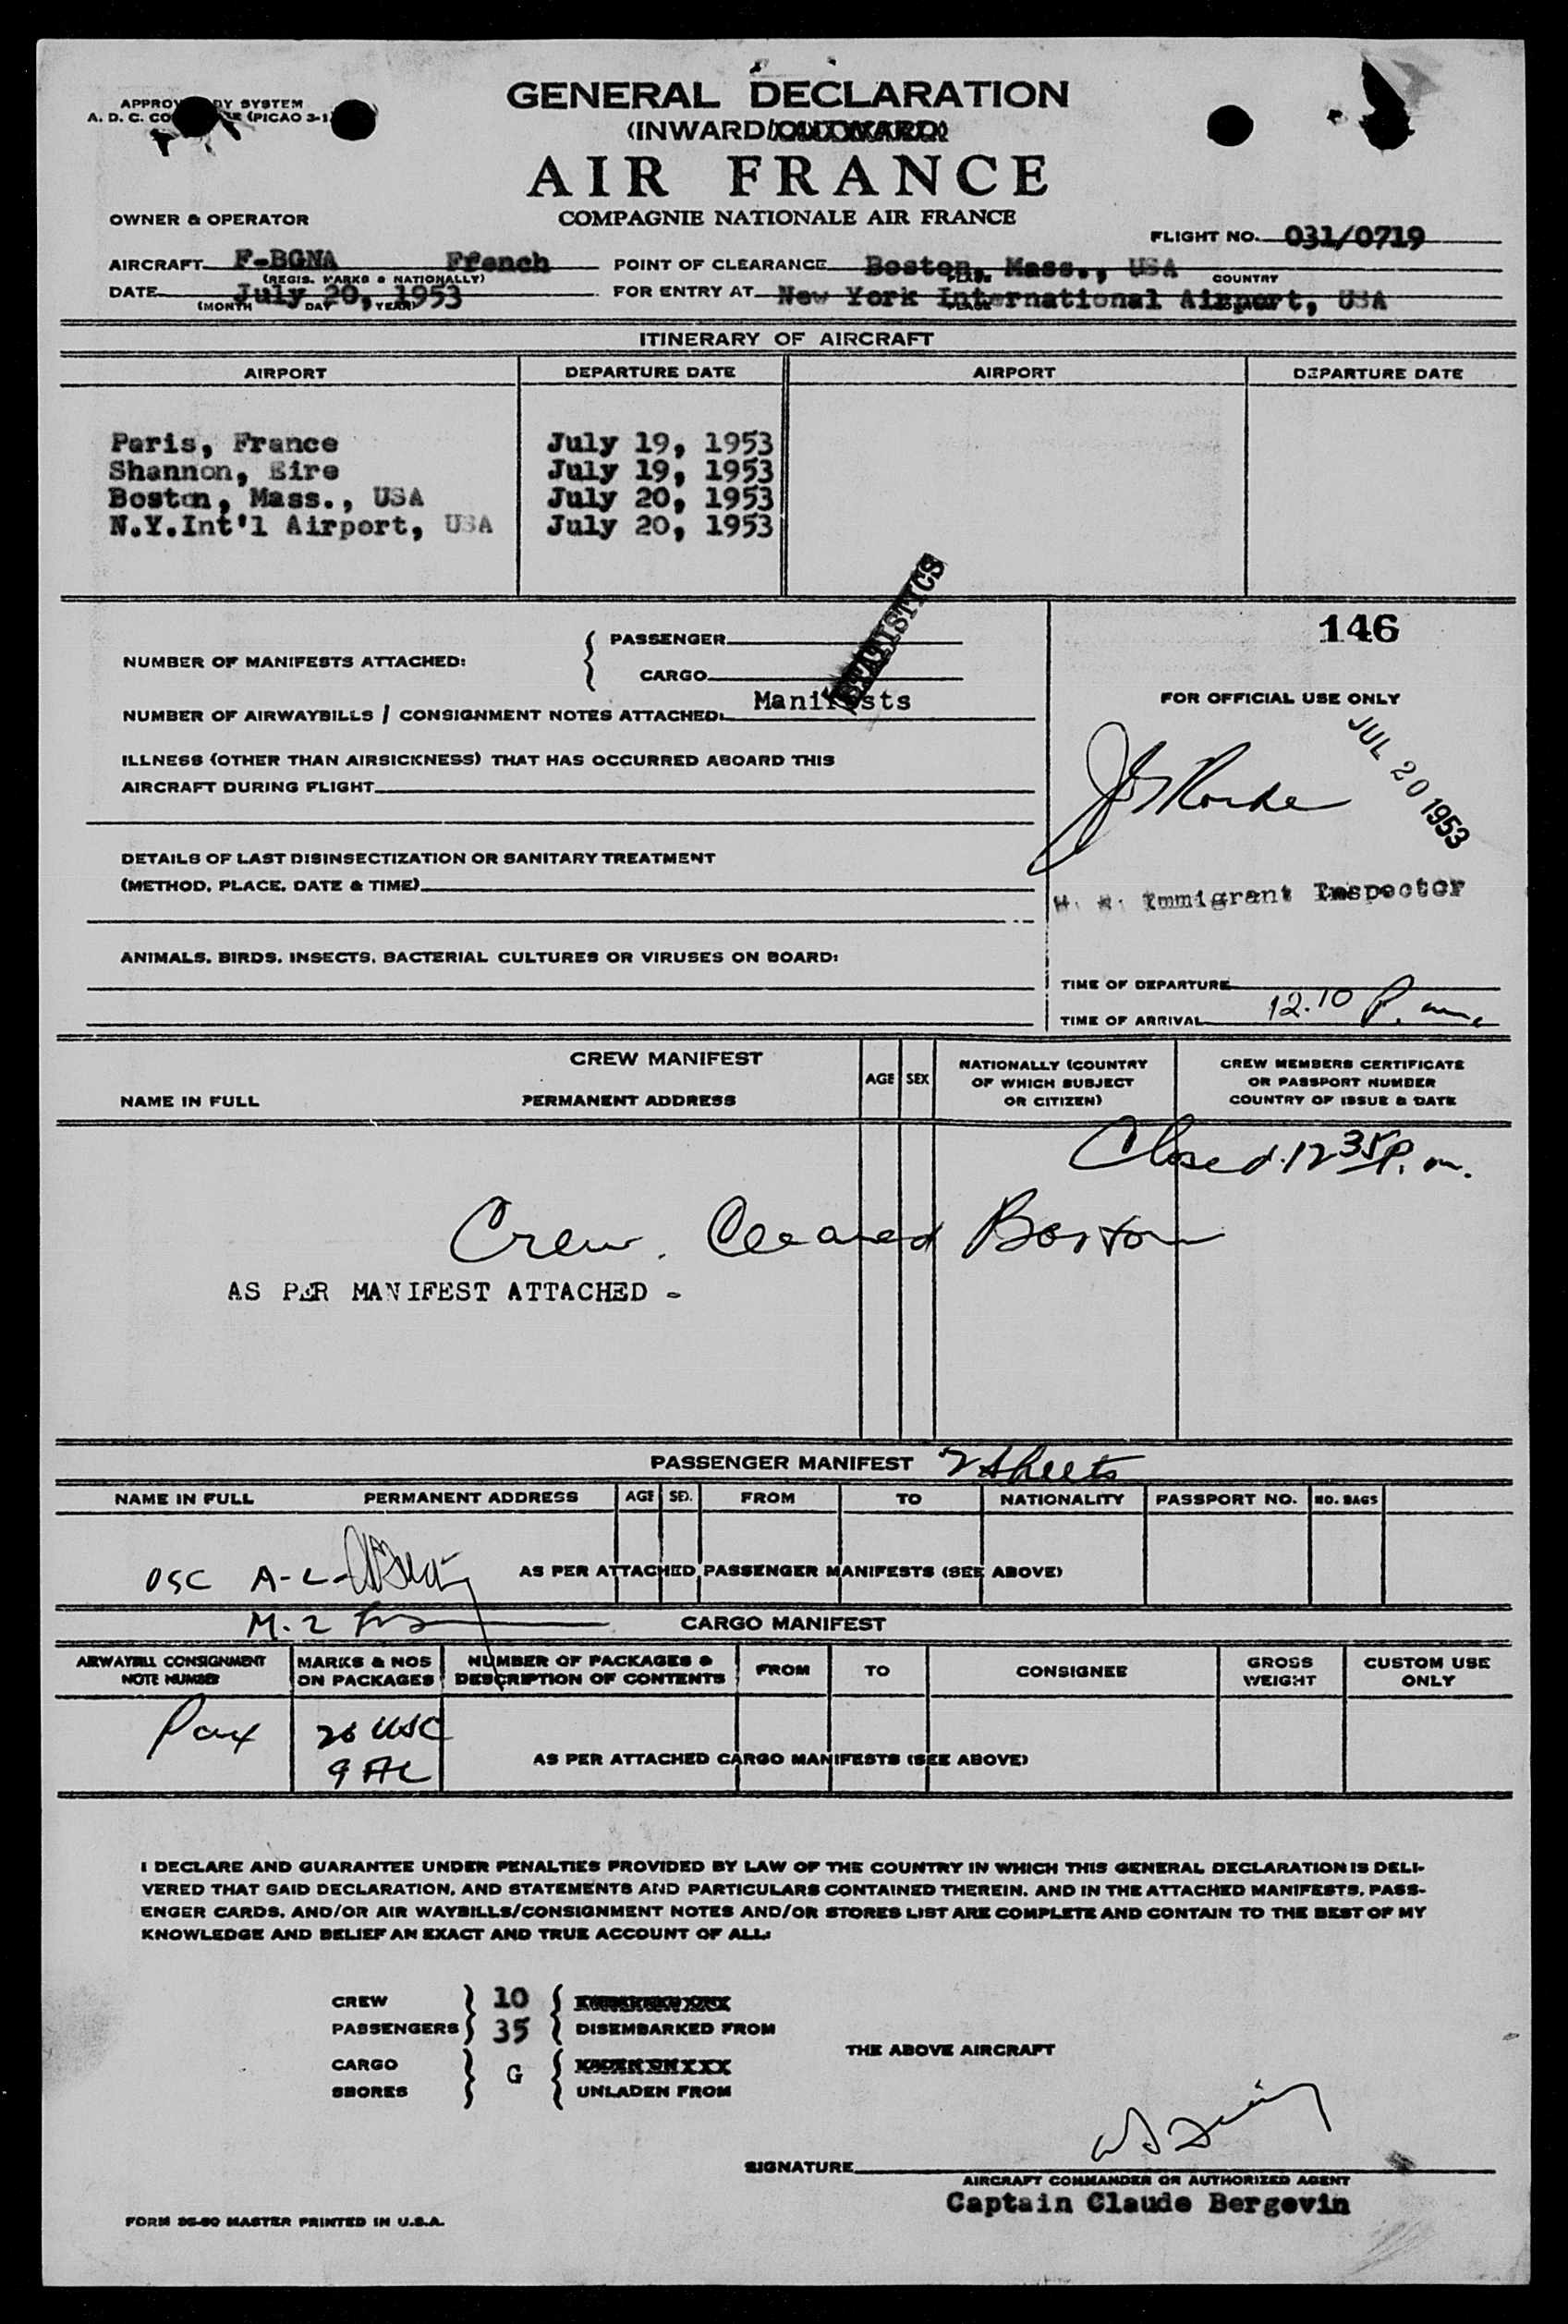 APPROV BY SYSTEM
A. D. C. CO (PICAO 3-1
GENERAL DECLARATION
(INWARD/
AIR FRANCE
OWNER & OPERATOR
COMPAGNIE NATIONALE AIR FRANCE
FLIGHT NO. 031/0719
AIRCRAFT F-BGNA French POINT OF CLEARANCE Boston, Mass., USA
(REGIS. MARKS & NATIONALLY) PLACE COUNTRY
DATE July 20, 1953 FOR ENTRY AT New York International Airport, USA
(MONTH DAY YEAR) PLACE
ITINERARY OF AIRCRAFT
AIRPORT DEPARTURE DATE AIRPORT DEPARTURE DATE
Paris, France July 19, 1953
Shannon, Eire July 19, 1953
Boston, Mass., USA July 20, 1953
N.Y.Int'l Airport, USA July 20, 1953
STATISTICS
146
NUMBER OF MANIFESTS ATTACHED: { PASSENGER
CARGO
NUMBER OF AIRWAYBILLS / CONSIGNMENT NOTES ATTACHED: Manifests
FOR OFFICIAL USE ONLY
JUL 20 1953
ILLNESS (OTHER THAN AIRSICKNESS) THAT HAS OCCURRED ABOARD THIS
AIRCRAFT DURING FLIGHT
DETAILS OF LAST DISINSECTIZATION OR SANITARY TREATMENT
(METHOD, PLACE, DATE & TIME)
Immigrant Inspector
ANIMALS, BIRDS, INSECTS, BACTERIAL CULTURES OR VIRUSES ON BOARD:
TIME OF DEPARTURE
TIME OF ARRIVAL 12.10 P.
CREW MANIFEST
NAME IN FULL PERMANENT ADDRESS AGE SEX NATIONALLY (COUNTRY OF WHICH SUBJECT OR CITIZEN) CREW MEMBERS CERTIFICATE OR PASSPORT NUMBER COUNTRY OF ISSUE & DATE
Closed 12 35 P.m.
Crew. Cleared Boston
AS PER MANIFEST ATTACHED -
PASSENGER MANIFEST 2 Sheets
NAME IN FULL PERMANENT ADDRESS AGE SEX FROM TO NATIONALITY PASSPORT NO. NO. BAGS
OSC A-L-
AS PER ATTACHED PASSENGER MANIFESTS (SEE ABOVE)
M. 2
CARGO MANIFEST
AIRWAYBILL CONSIGNMENT NOTE NUMBER MARKS & NOS ON PACKAGES NUMBER OF PACKAGES & DESCRIPTION OF CONTENTS FROM TO CONSIGNEE GROSS WEIGHT CUSTOM USE ONLY
Pax 26 USC
9 AL
AS PER ATTACHED CARGO MANIFESTS (SEE ABOVE)
I DECLARE AND GUARANTEE UNDER PENALTIES PROVIDED BY LAW OF THE COUNTRY IN WHICH THIS GENERAL DECLARATION IS DELI-
VERED THAT SAID DECLARATION, AND STATEMENTS AND PARTICULARS CONTAINED THEREIN, AND IN THE ATTACHED MANIFESTS, PASS-
ENGER CARDS, AND/OR AIR WAYBILLS/CONSIGNMENT NOTES AND/OR STORES LIST ARE COMPLETE AND CONTAIN TO THE BEST OF MY
KNOWLEDGE AND BELIEF AN EXACT AND TRUE ACCOUNT OF ALL:
CREW } 10 {
PASSENGERS } 35 { DISEMBARKED FROM
THE ABOVE AIRCRAFT
CARGO } G {
SBORES } { UNLADEN FROM
SIGNATURE
AIRCRAFT COMMANDER OR AUTHORIZED AGENT
Captain Claude Bergevin
FORM 36-50 MASTER PRINTED IN U.S.A.